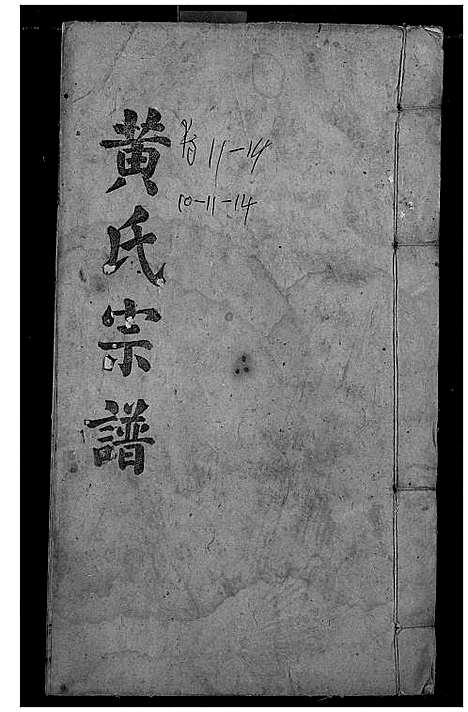 黄氏宗譜
卷11-14
10-11-14